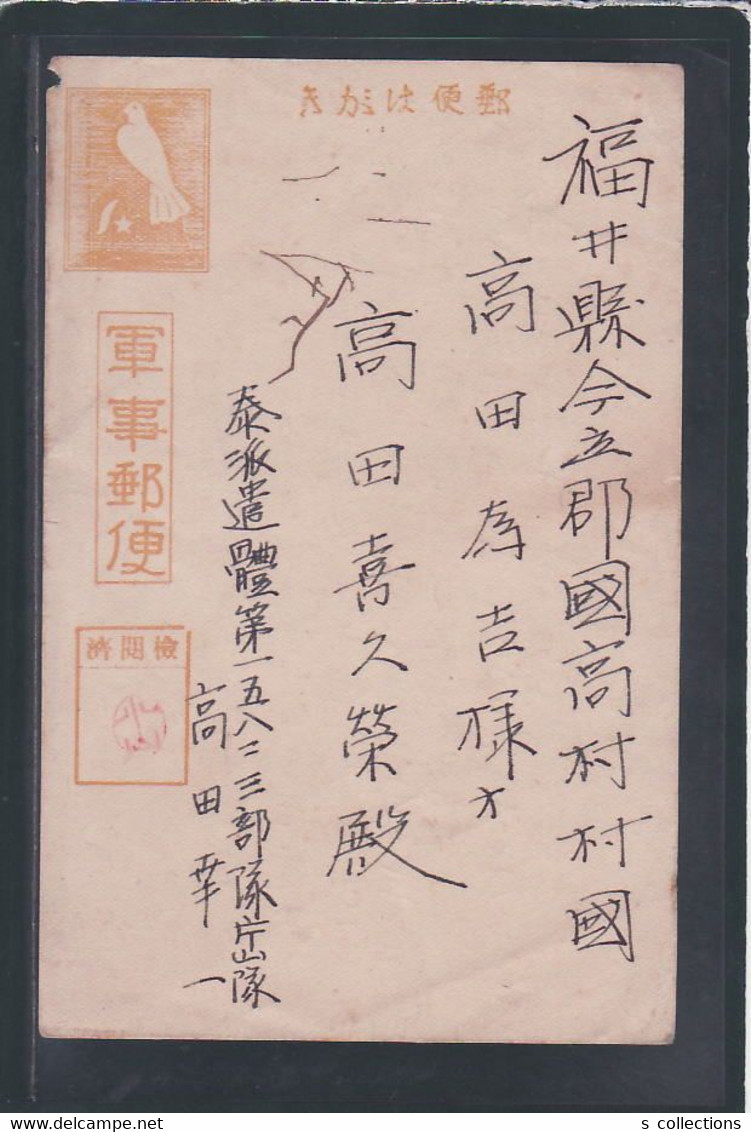 郵便はがき
福井縣今立郡國高村村國
高田為吉様方
高田喜久榮殿
泰派遣體第一五八二三部隊片山隊
高田幸一
軍事郵便
檢閲濟
s collections